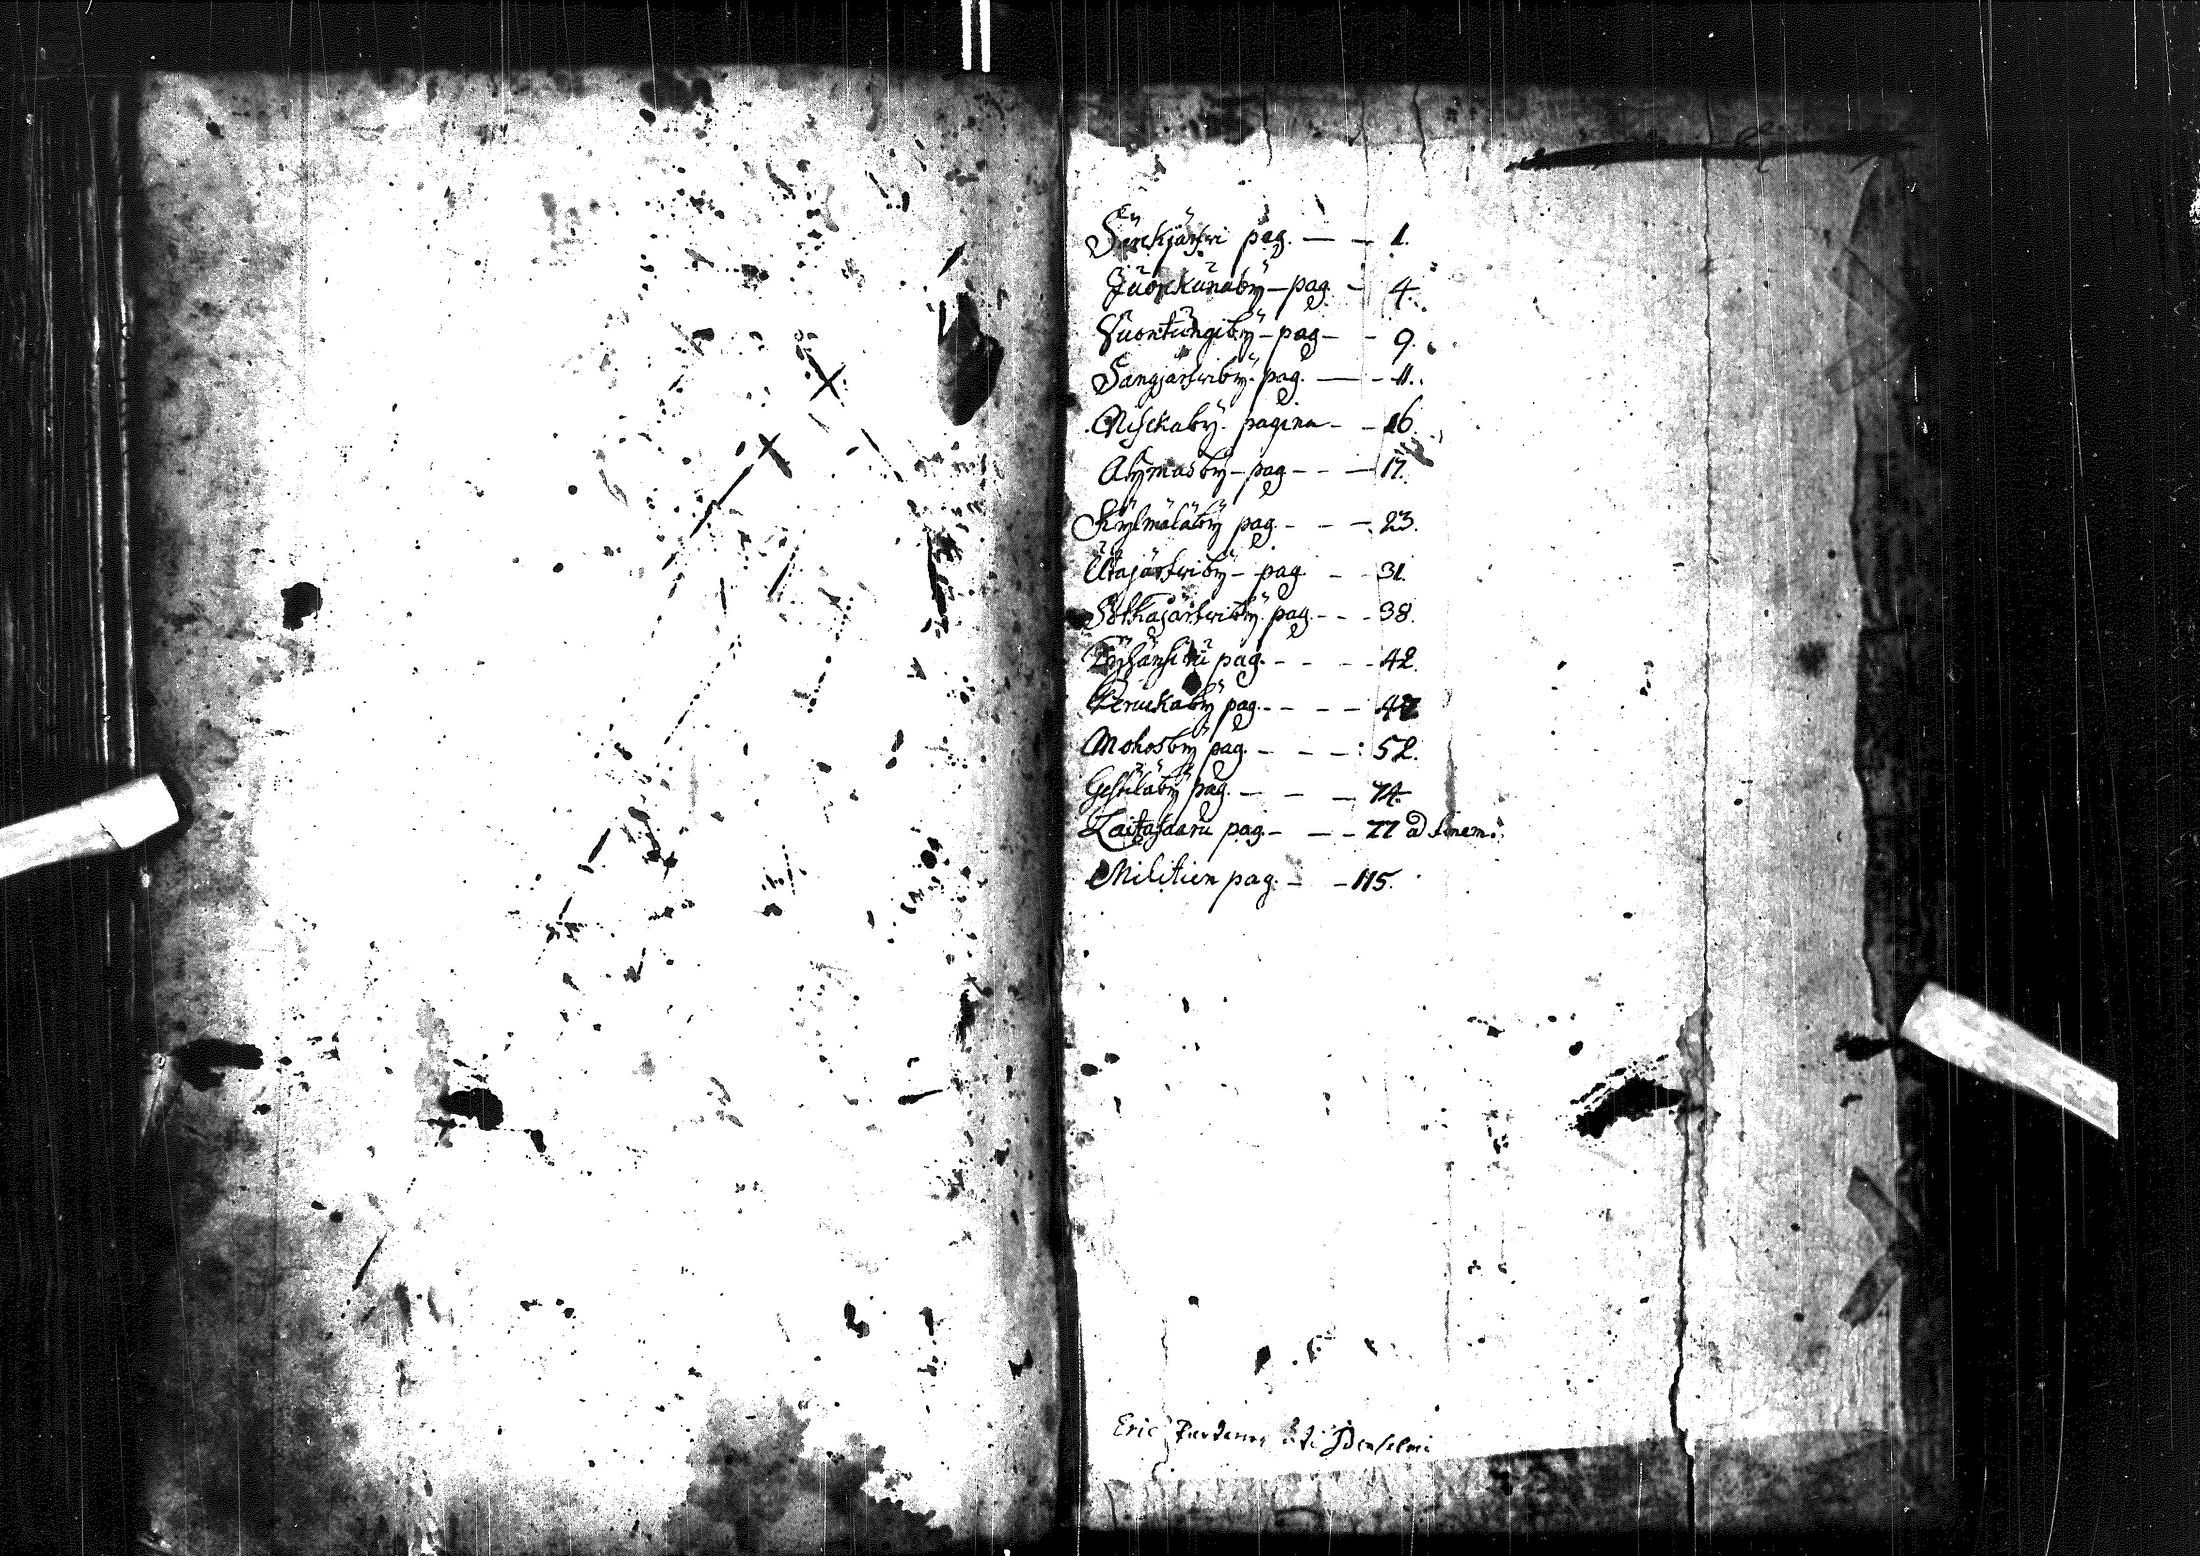 Särkijärfwi pag. — — 1.
Juorkunaby — pag — 4.
Vuontungiby — pag — - 9.
Sangjärfwiby. pag. — - 11.
Niskaby. pagina - - 16.
Ahmasby — pag - - — 17.
Kylmäläby pag - - — 23.
Utajärfwiby — pag - - 31.
Sotkajärfwiby. pag. - - - 38.
pag. - - - 42.
pag. - - - - 47
Mohosby pag. - - - : 52.
pag. - - — 74.
Laitasaari pag - — - 77 ad finem.
Militien pag. - - 115.
Eric